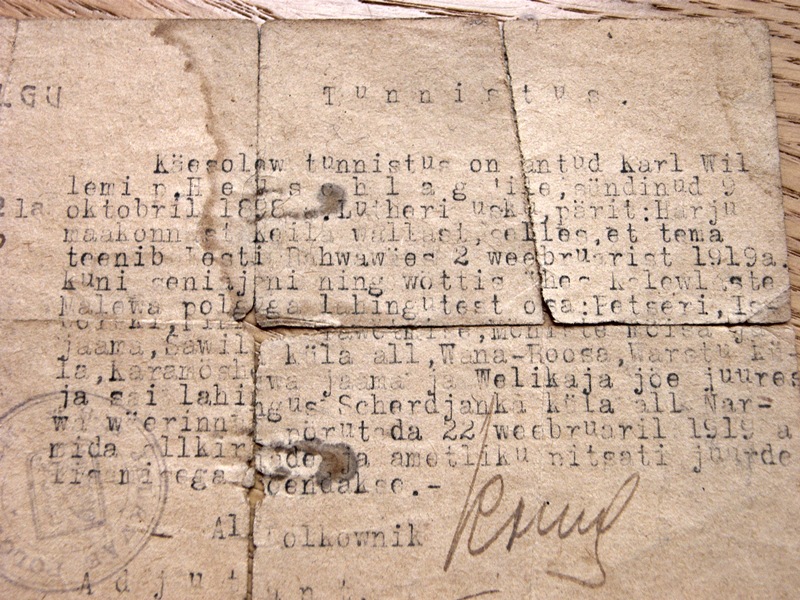 LGU
Tunnistus.
Käesolew tunnistus on antud Karl Wil
lemi p.Heuschlag'ile,sündinud 9
oktobril 1898 a.Lutheri usku,pärit:Harju
maakonnast Keila wallast,selles,et tema
teenib Eesti Rahwawäes 2 weebruarist 1919a.
kuni seniajani ning wõttis ühes Kalewlaste
Malewa polguga lahingutest osa:Petseri,Is
mõisa
jaama, küla all,Wana-Roosa,Warstu kü-
la, jaama ja Welikaja jõe juures
ja sai lahingus Scherdjanki küla all Nar-
wa wäerinnal põrutada 22 weebruaril 1919 a
mida allkirjade ja ametliku pitsati juurde
lisamisega tõendakse.-
Alampolkownik
Adjutant.